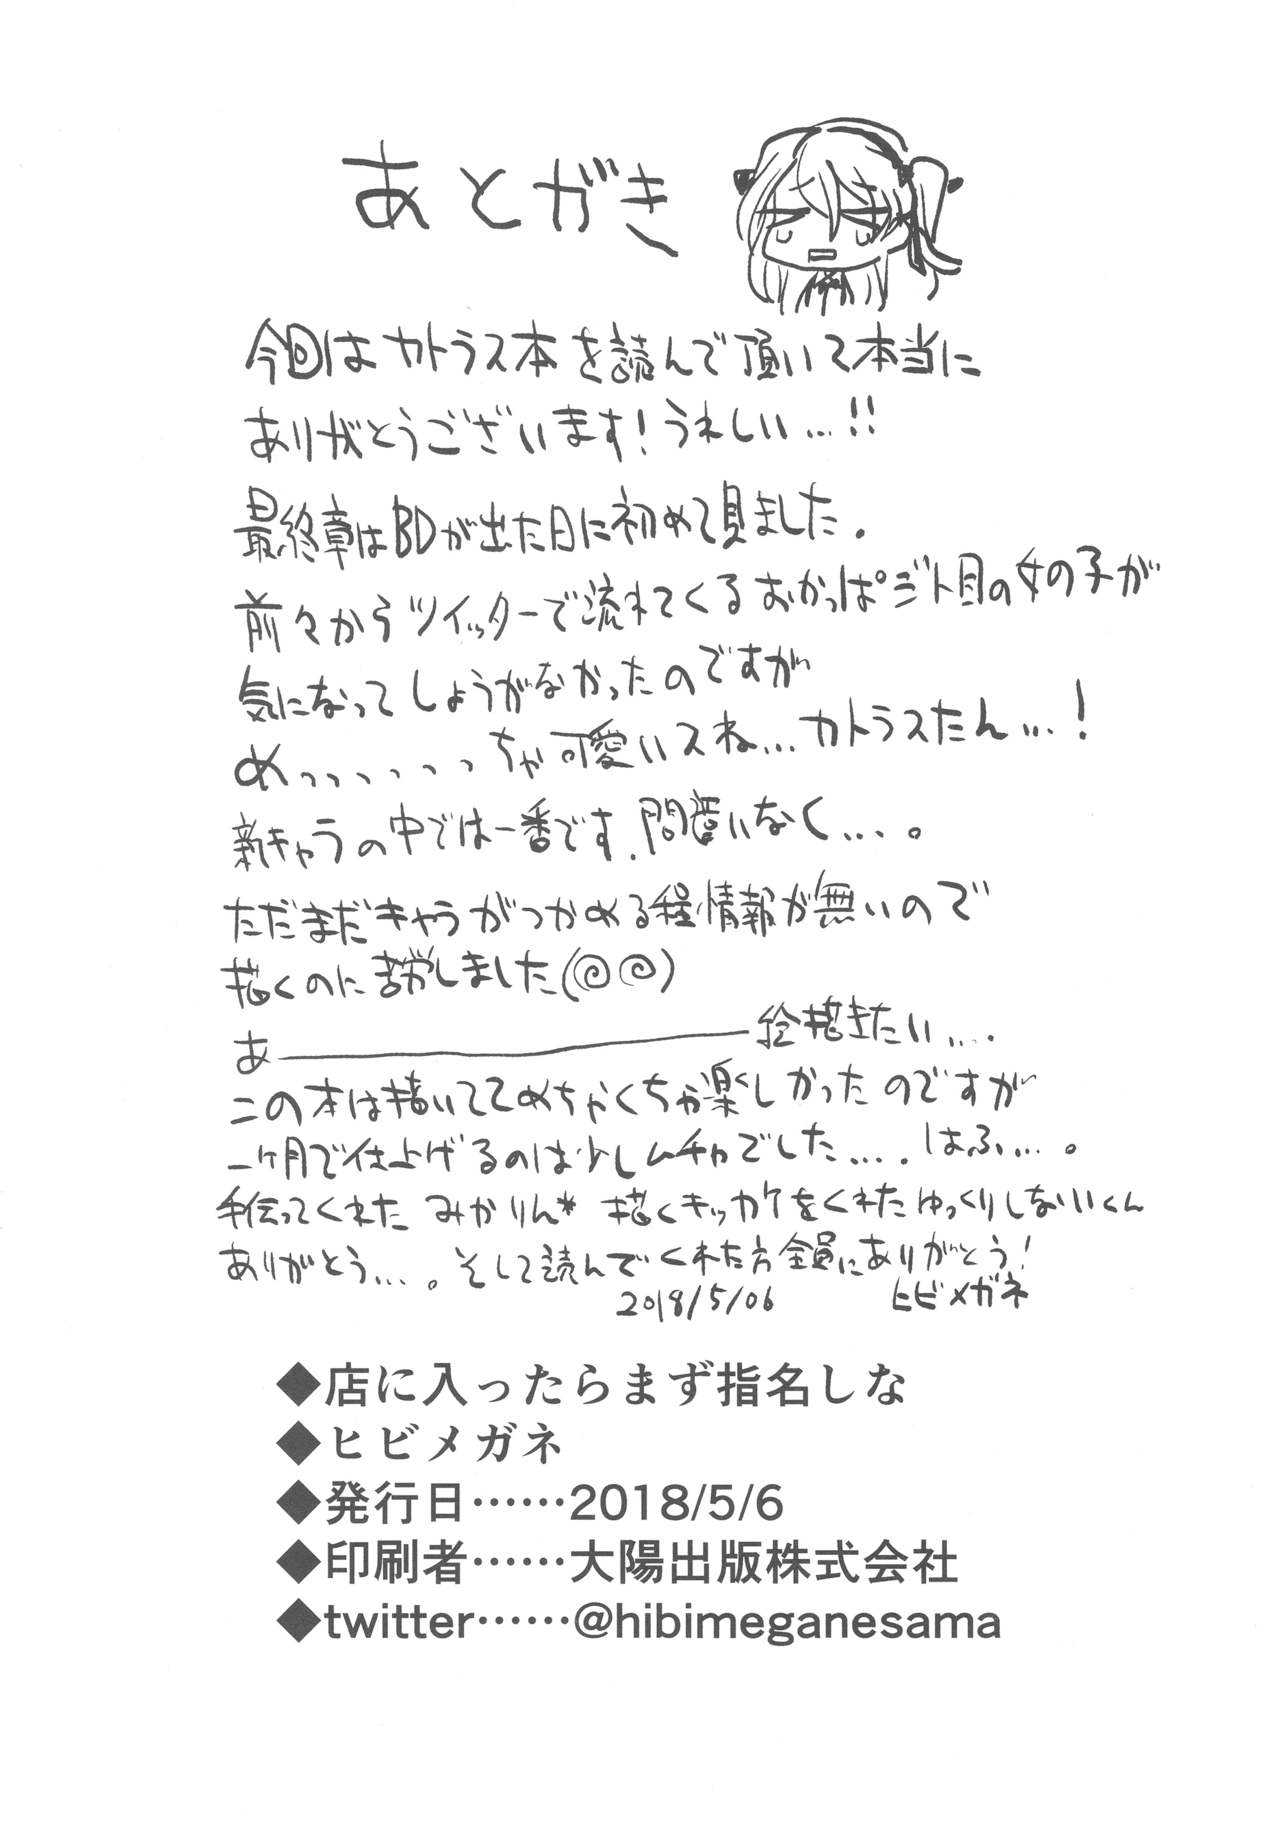 あとがき
今回はカトラス本を読んで頂いて本当に
ありがとうございます!うれしい...!!
最終章はBDが出た日に初めて見ました.
前々からツイッターで流れてくるおかっぱジト目の女の子が
気になってしょうがなかったのですが
めっっっっっっちゃ可愛いスね...カトラスたん...!
新キャラの中では一番です.間違いなく...。
ただまだキャラがつかめる程情報が無いので
描くのに苦労しました(◎◎)
あ――――――絵描きたい....
この本は描いててめちゃくちゃ楽しかったのですが
一ヶ月で仕上げるのは少しムチャでした.... はふ...。
手伝ってくれた みかりん* 描くキッカケをくれたゆっくりしないいくん
ありがとう...。そして読んでくれた方全員にありがとう!
2018/5/06 ヒビメガネ
◆店に入ったらまず指名しな
◆ヒビメガネ
◆発行日……2018/5/6
◆印刷者……大陽出版株式会社
◆twitter……@hibimeganesama